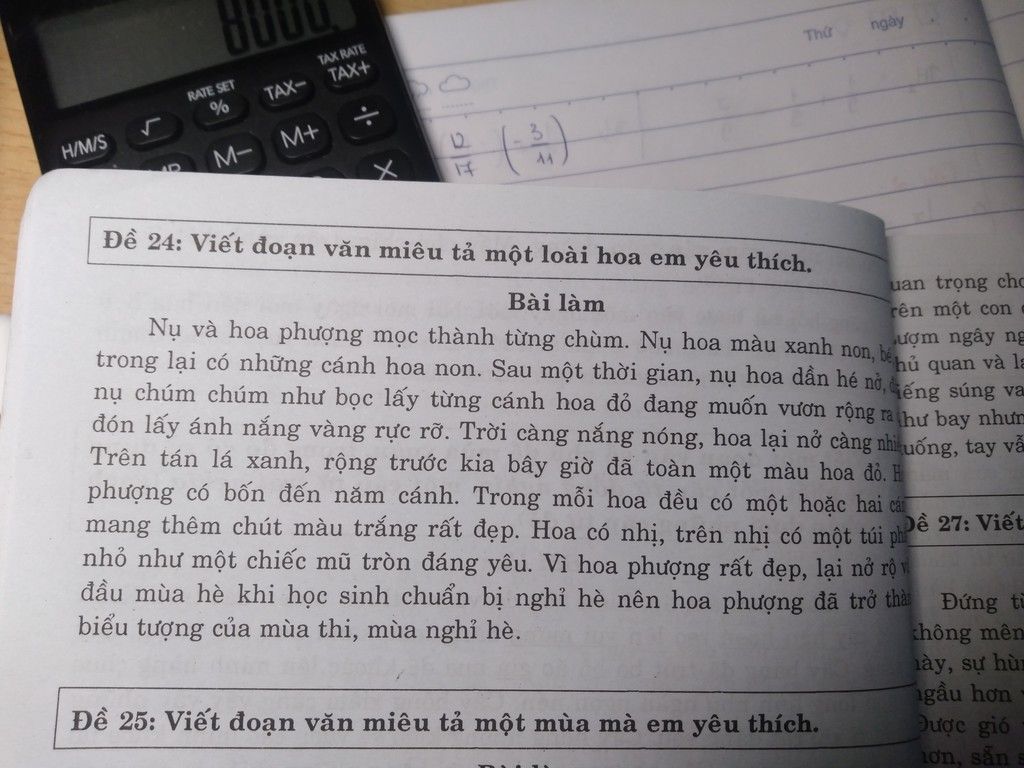 8000.
TAX RATE
RATE SET
H/M/S
√
%
TAX−
TAX+
M−
M+
÷
×
Thứ ngày
12/17 (-3/11)
Đề 24: Viết đoạn văn miêu tả một loài hoa em yêu thích.
Bài làm
Nụ và hoa phượng mọc thành từng chùm. Nụ hoa màu xanh non,
trong lại có những cánh hoa non. Sau một thời gian, nụ hoa dần hé nở,
nụ chúm chúm như bọc lấy từng cánh hoa đỏ đang muốn vươn rộng ra
đón lấy ánh nắng vàng rực rỡ. Trời càng nắng nóng, hoa lại nở càng
Trên tán lá xanh, rộng trước kia bây giờ đã toàn một màu hoa đỏ.
phượng có bốn đến năm cánh. Trong mỗi hoa đều có một hoặc hai
mang thêm chút màu trắng rất đẹp. Hoa có nhị, trên nhị có một túi
nhỏ như một chiếc mũ tròn đáng yêu. Vì hoa phượng rất đẹp, lại nở rộ
đầu mùa hè khi học sinh chuẩn bị nghỉ hè nên hoa phượng đã trở
biểu tượng của mùa thi, mùa nghỉ hè.
Đề 25: Viết đoạn văn miêu tả một mùa mà em yêu thích.
trọng
một con
ngây
quan và
súng
bay
tay
Đề 27: Viết
Đứng
sự
hơn
gió
sẵn